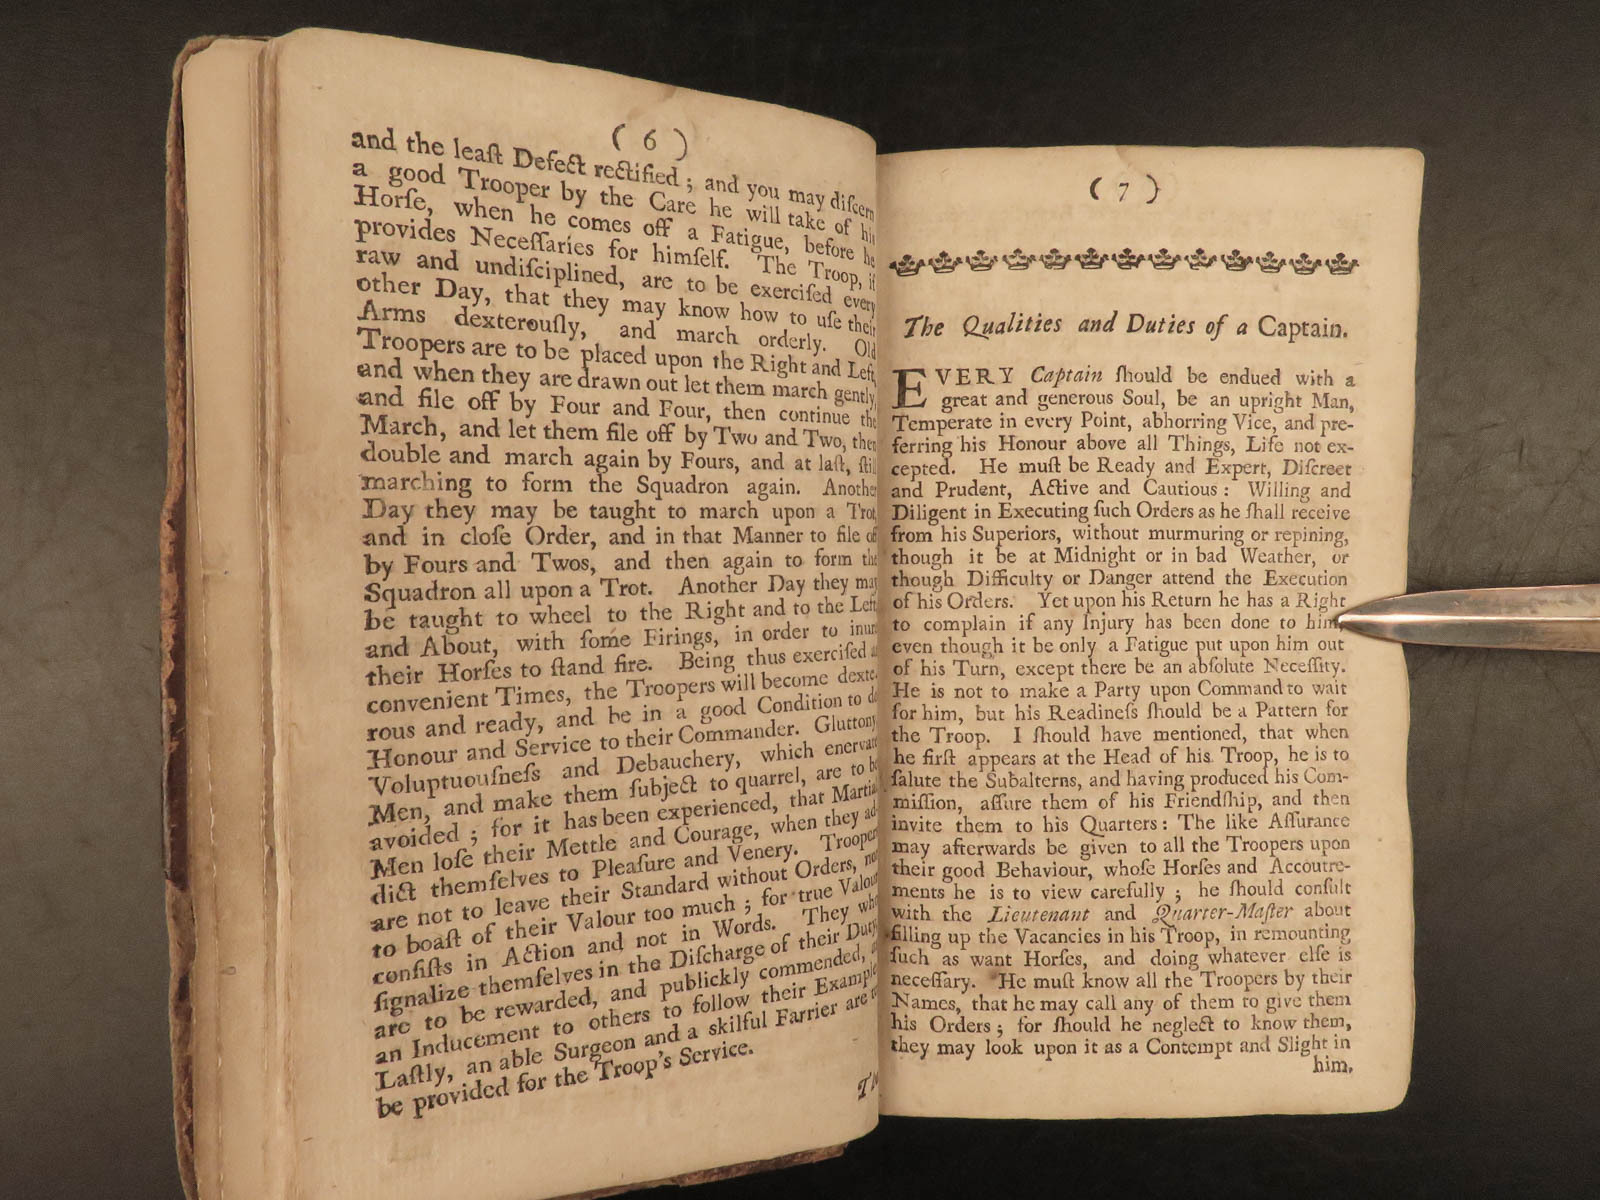 ( 6 )
and the leaſt Defect rectified ; and you may diſcern
a good Trooper by the Care he will take of his
Horſe, when he comes off a Fatigue, before he
provides Neceſſaries for himſelf. The Troop, if
raw and undiſciplined, are to be exerciſed every
other Day, that they may know how to uſe their
Arms dexterouſly, and march orderly. Old
Troopers are to be placed upon the Right and Left,
and when they are drawn out let them march gently,
and file off by Four and Four, then continue the
March, and let them file off by Two and Two, then
double and march again by Fours, and at laſt, ſtill
marching to form the Squadron again. Another
Day they may be taught to march upon a Trot,
and in cloſe Order, and in that Manner to file off
by Fours and Twos, and then again to form the
Squadron all upon a Trot. Another Day they may
be taught to wheel to the Right and to the Left
and About, with ſome Firings, in order to inure
their Horſes to ſtand fire. Being thus exerciſed at
convenient Times, the Troopers will become dexte-
rous and ready, and be in a good Condition to do
Honour and Service to their Commander. Gluttony,
Voluptuouſneſs and Debauchery, which enervate
Men, and make them ſubject to quarrel, are to be
avoided ; for it has been experienced, that Martial
Men loſe their Mettle and Courage, when they ad-
dict themſelves to Pleaſure and Venery. Troopers
are not to leave their Standard without Orders, nor
to boaſt of their Valour too much ; for true Valour
conſiſts in Action and not in Words. They who
ſignalize themſelves in the Diſcharge of their Duty,
are to be rewarded, and publickly commended, as
an Inducement to others to follow their Example.
Laſtly, an able Surgeon and a skilful Farrier are to
be provided for the Troop's Service.
( 7 )
The Qualities and Duties of a Captain.
EVERY Captain ſhould be endued with a
great and generous Soul, be an upright Man,
Temperate in every Point, abhorring Vice, and pre-
ferring his Honour above all Things, Life not ex-
cepted. He muſt be Ready and Expert, Diſcreet
and Prudent, Active and Cautious : Willing and
Diligent in Executing ſuch Orders as he ſhall receive
from his Superiors, without murmuring or repining,
though it be at Midnight or in bad Weather, or
though Difficulty or Danger attend the Execution
of his Orders. Yet upon his Return he has a Right
to complain if any Injury has been done to him,
even though it be only a Fatigue put upon him out
of his Turn, except there be an abſolute Neceſſity.
He is not to make a Party upon Command to wait
for him, but his Readineſs ſhould be a Pattern for
the Troop. I ſhould have mentioned, that when
he firſt appears at the Head of his Troop, he is to
ſalute the Subalterns, and having produced his Com-
miſſion, aſſure them of his Friendſhip, and then
invite them to his Quarters : The like Aſſurance
may afterwards be given to all the Troopers upon
their good Behaviour, whoſe Horſes and Accoutre-
ments he is to view carefully ; he ſhould conſult
with the Lieutenant and Quarter-Maſter about
filling up the Vacancies in his Troop, in remounting
ſuch as want Horſes, and doing whatever elſe is
neceſſary. He muſt know all the Troopers by their
Names, that he may call any of them to give them
his Orders ; for ſhould he neglect to know them,
they may look upon it as a Contempt and Slight in
him.